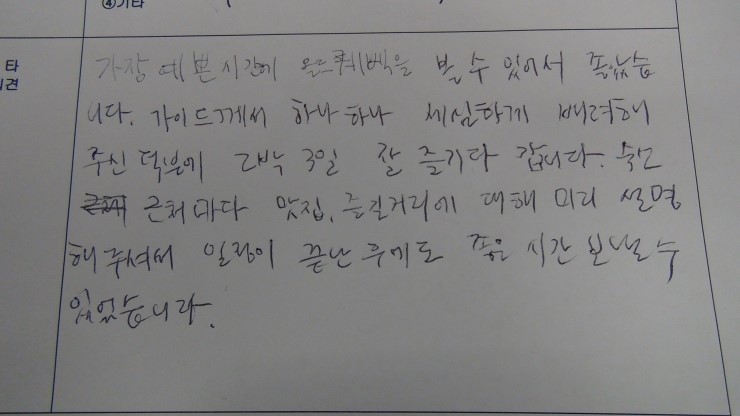 ④기타
타
견
가장 예쁜 시간에 올드퀘벡을 볼 수 있어서 좋았습
니다. 가이드께서 하나하나 세심하게 배려해
주신 덕분에 2박 3일 잘 즐기다 갑니다. 숙소
근처마다 맛집, 즐길거리에 대해 미리 설명
해주셔서 일정이 끝난 후에도 좋은 시간 보낼 수
있었습니다.